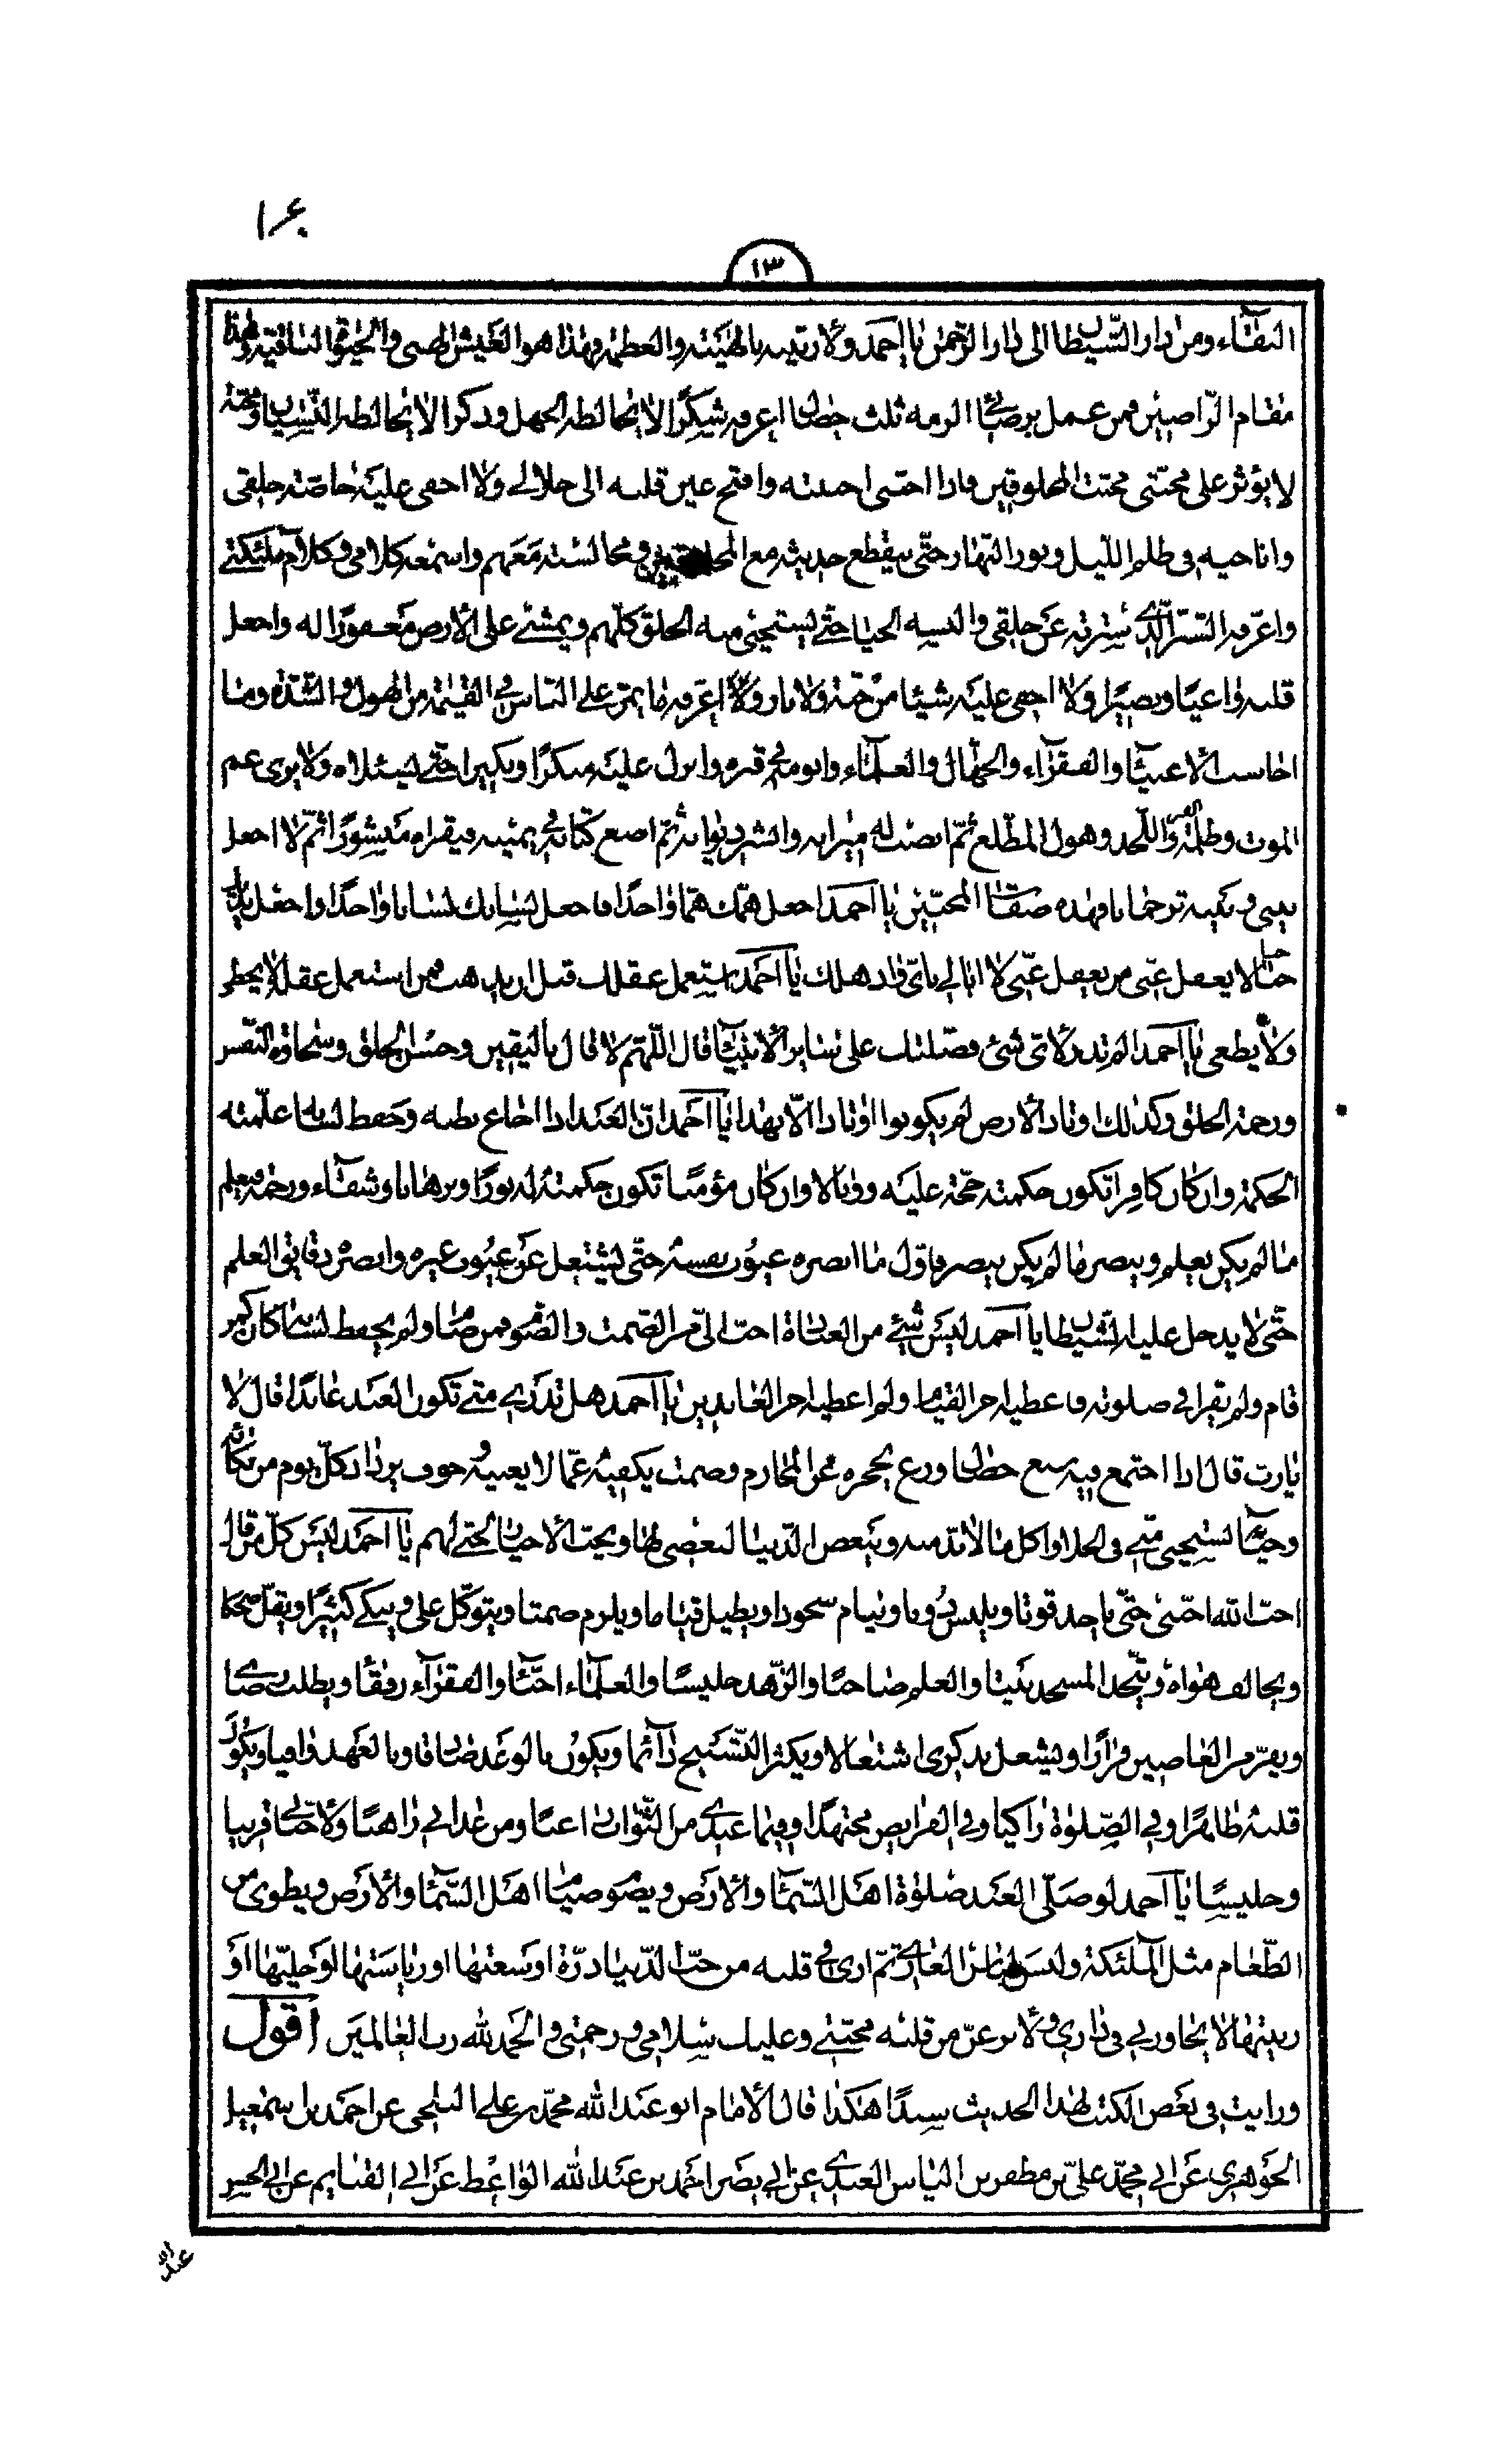 ١٣
البقاء ومن دار الشيطان الى دار الرحمن يا احمد ولأزيننه بالهيبة والعظمة فهذا هو العيش الهنىء والحيوة الباقية وهذا
مقام الراضين فمن عمل برضائى الزمه ثلث خصال اعرفه شكرًا لا يخالطه الجهل وذكرا لا يخالطه النسيان ومحبة
لا يؤثر على محبتى محبت المخلوقين فاذا احبنى احببته وافتح عين قلبه الى جلالى ولا اخفى عليه خاصة خلقى
واناجيه فى ظلم الليل ونور النهار حتى ينقطع حديثه مع المخلوقين ومجالسته معهم واسمعه كلامى وكلام ملئكتى
واعرفه السر الذى سترته عن خلقى والبسه الحياء حتى يستحيى منه الخلق كلهم ويمشى على الأرض مغفورًا له واجعل
قلبه واعيًا وبصيرًا ولا اخفى عليه شيئا من جنة ولا نار ولأعرفه ما يمر على الناس فى القيمة من الهول والشدة وما
احاسب الأغنياء والفقراء والجهال والعلماء وانومه فى قبره وانزل عليه منكرًا ونكيرا حتى يسئلاه ولا يرى غم
الموت وظلمة القبر واللحد وهول المطلع ثم انصب له ميزانه وانشر ديوانه ثم اضع كتابه فى يمينه فيقراه منشورًا ثم لا اجعل
بينى وبينه ترجمانا فهذه صفات المحبين يا احمد اجعل همك همًا واحدًا فاجعل لسانك لسانا واحدًا واجعل بدنك
حيا لا يغفل عنى من يغفل عنى لا ابالى باى واد هلك يا احمد استعمل عقلك قبل ان يذهب فمن استعمل عقله لا يخطى
ولا يطغى يا احمد الم تدر لأى شىء فضلتك على سائر الأنبياء قال اللهم لا قال باليقين وحسن الخلق وسخاوة النفس
ورحمة الخلق وكذلك اوتاد الأرض لم يكونوا اوتادا الا بهذا يا احمد ان العبد اذا اجاع بطنه وحفظ لسانه علمته
الحكمة وان كان كافرا تكون حكمته حجة عليه ووبالا وان كان مؤمنًا تكون حكمته له نورًا وبرهانا وشفاء ورحمة فيعلم
ما لم يكن يعلم ويبصر ما لم يكن يبصر فاول ما ابصره عيوب نفسه حتى يشتغل عن عيوب غيره وابصره دقايق العلم
حتى لا يدخل عليه الشيطان يا احمد ليس شىء من العبادة احب الى من الصمت والصوم فمن صام ولم يحفظ لسانه كان كمن
قام ولم يقرا فى صلوته فاعطيه اجر القيام ولم اعطيه اجر العابدين يا احمد هل تدرى متى تكون العبد عابدًا قال لا
يا رب قال اذا اجتمع فيه سبع خصال ورع يحجره عن المحارم وصمت يكفيه عما لا يعنيه وخوف يزداد كل يوم من بكائه
وحياء يستحيى منى فى الخلا واكل ما لا بد منه ويبغض الدنيا لبغضى لها ويحب الأخيار لحبى لهم يا احمد ليس كل من قال
احب الله احبنى حتى ياخذ قوتا ويلبس دونا وينام سجودا ويطيل قياما ويلزم صمتا ويتوكل على ويبكى كثيرًا ويقل ضحكا
ويخالف هواه ويتخذ المسجد بيتا والعلم صاحبًا والزهد جليسًا والعلماء احباء والفقراء رفقاء ويطلب رضاى
ويفر من العاصين فرارًا ويشغل بذكرى اشتغالا ويكثر التسبيح دائما ويكون بالوعد صادقا وبالعهد وافيا ويكون
قلبه طاهرًا وفى الصلوة زاكيا وفى الفرايض مجتهدًا وفيما عندى من الثواب راغبًا ومن عذابى راهبًا ولأحبائى قريبا
وجليسًا يا احمد لو صلى العبد صلوة اهل السماء والأرض ويصوم صيام اهل السماء والأرض ويطوى من
الطعام مثل الملئكة ولبس لباس العارى ثم ارى فى قلبه من حب الدنيا ذرة او سعتها او رياستها او حليتها او
زينتها لا يجاورنى فى دارى ولأنزعن من قلبه محبتى وعليك سلامى ورحمتى والحمد لله رب العالمين اقول
ورايت فى بعض الكتب لهذا الحديث سندًا هكذا قال الأمام ابو عبد الله محمد بن على البلخى عن احمد بن اسمعيل
الجوهرى عن ابى محمد على بن مظفر بن الياس العبدى عن ابى نصر احمد بن عبد الله الواعظ عن ابى الغنايم عن ابى الحسن
عبد